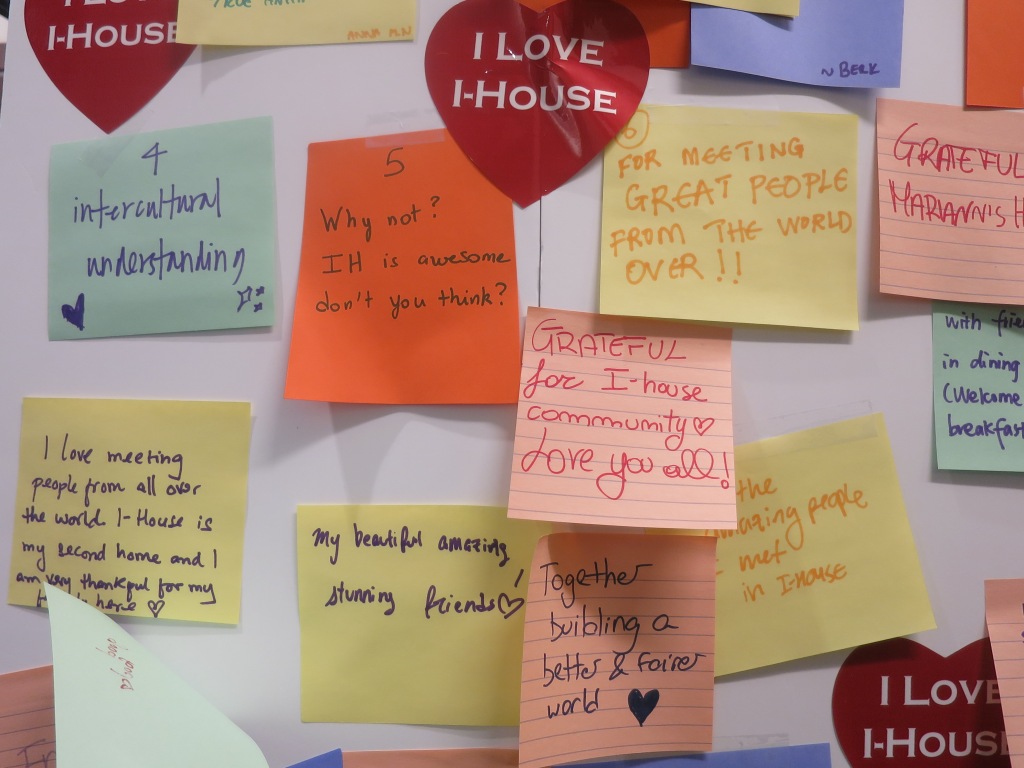 I-HOUSE
ANNA M.N
I LOVE
I-HOUSE
~ BERK
4
intercultural
understanding
5
Why not?
IH is awesome
don't you think?
6
FOR MEETING
GREAT PEOPLE
FROM THE WORLD
OVER!!
GRATEFUL
MARIANN'S H
with
in dining
(Welcome
breakfast
GRATEFUL
for I-house
community♡
Love you all!
I love meeting
people from all over
the world. I-House is
my second home and I
am very thankful for my
here ♡
my beautiful amazing,
stunning friends♡
the
amazing people
I met
in I-HOUSE
Together
buibling a
better & fairer
world ♥
I LOVE
I-HOUSE